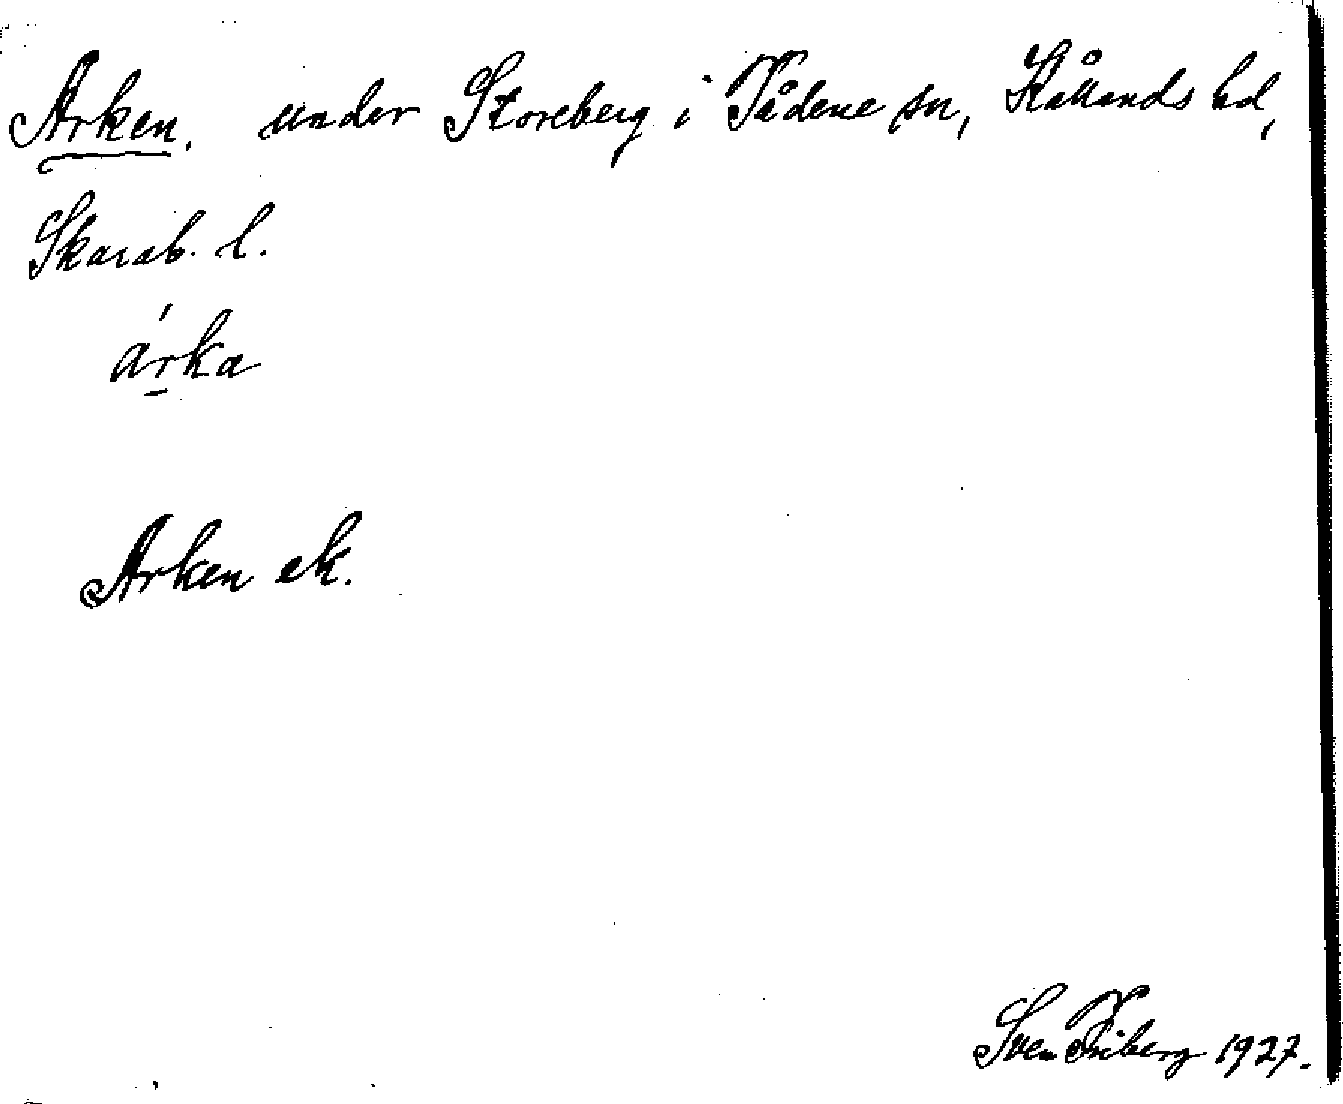 Arken. under Storeberg i Tådene sn, Kållands hd,
Skarab. l.
árka
Arken ek.
Sven Friberg 1927.